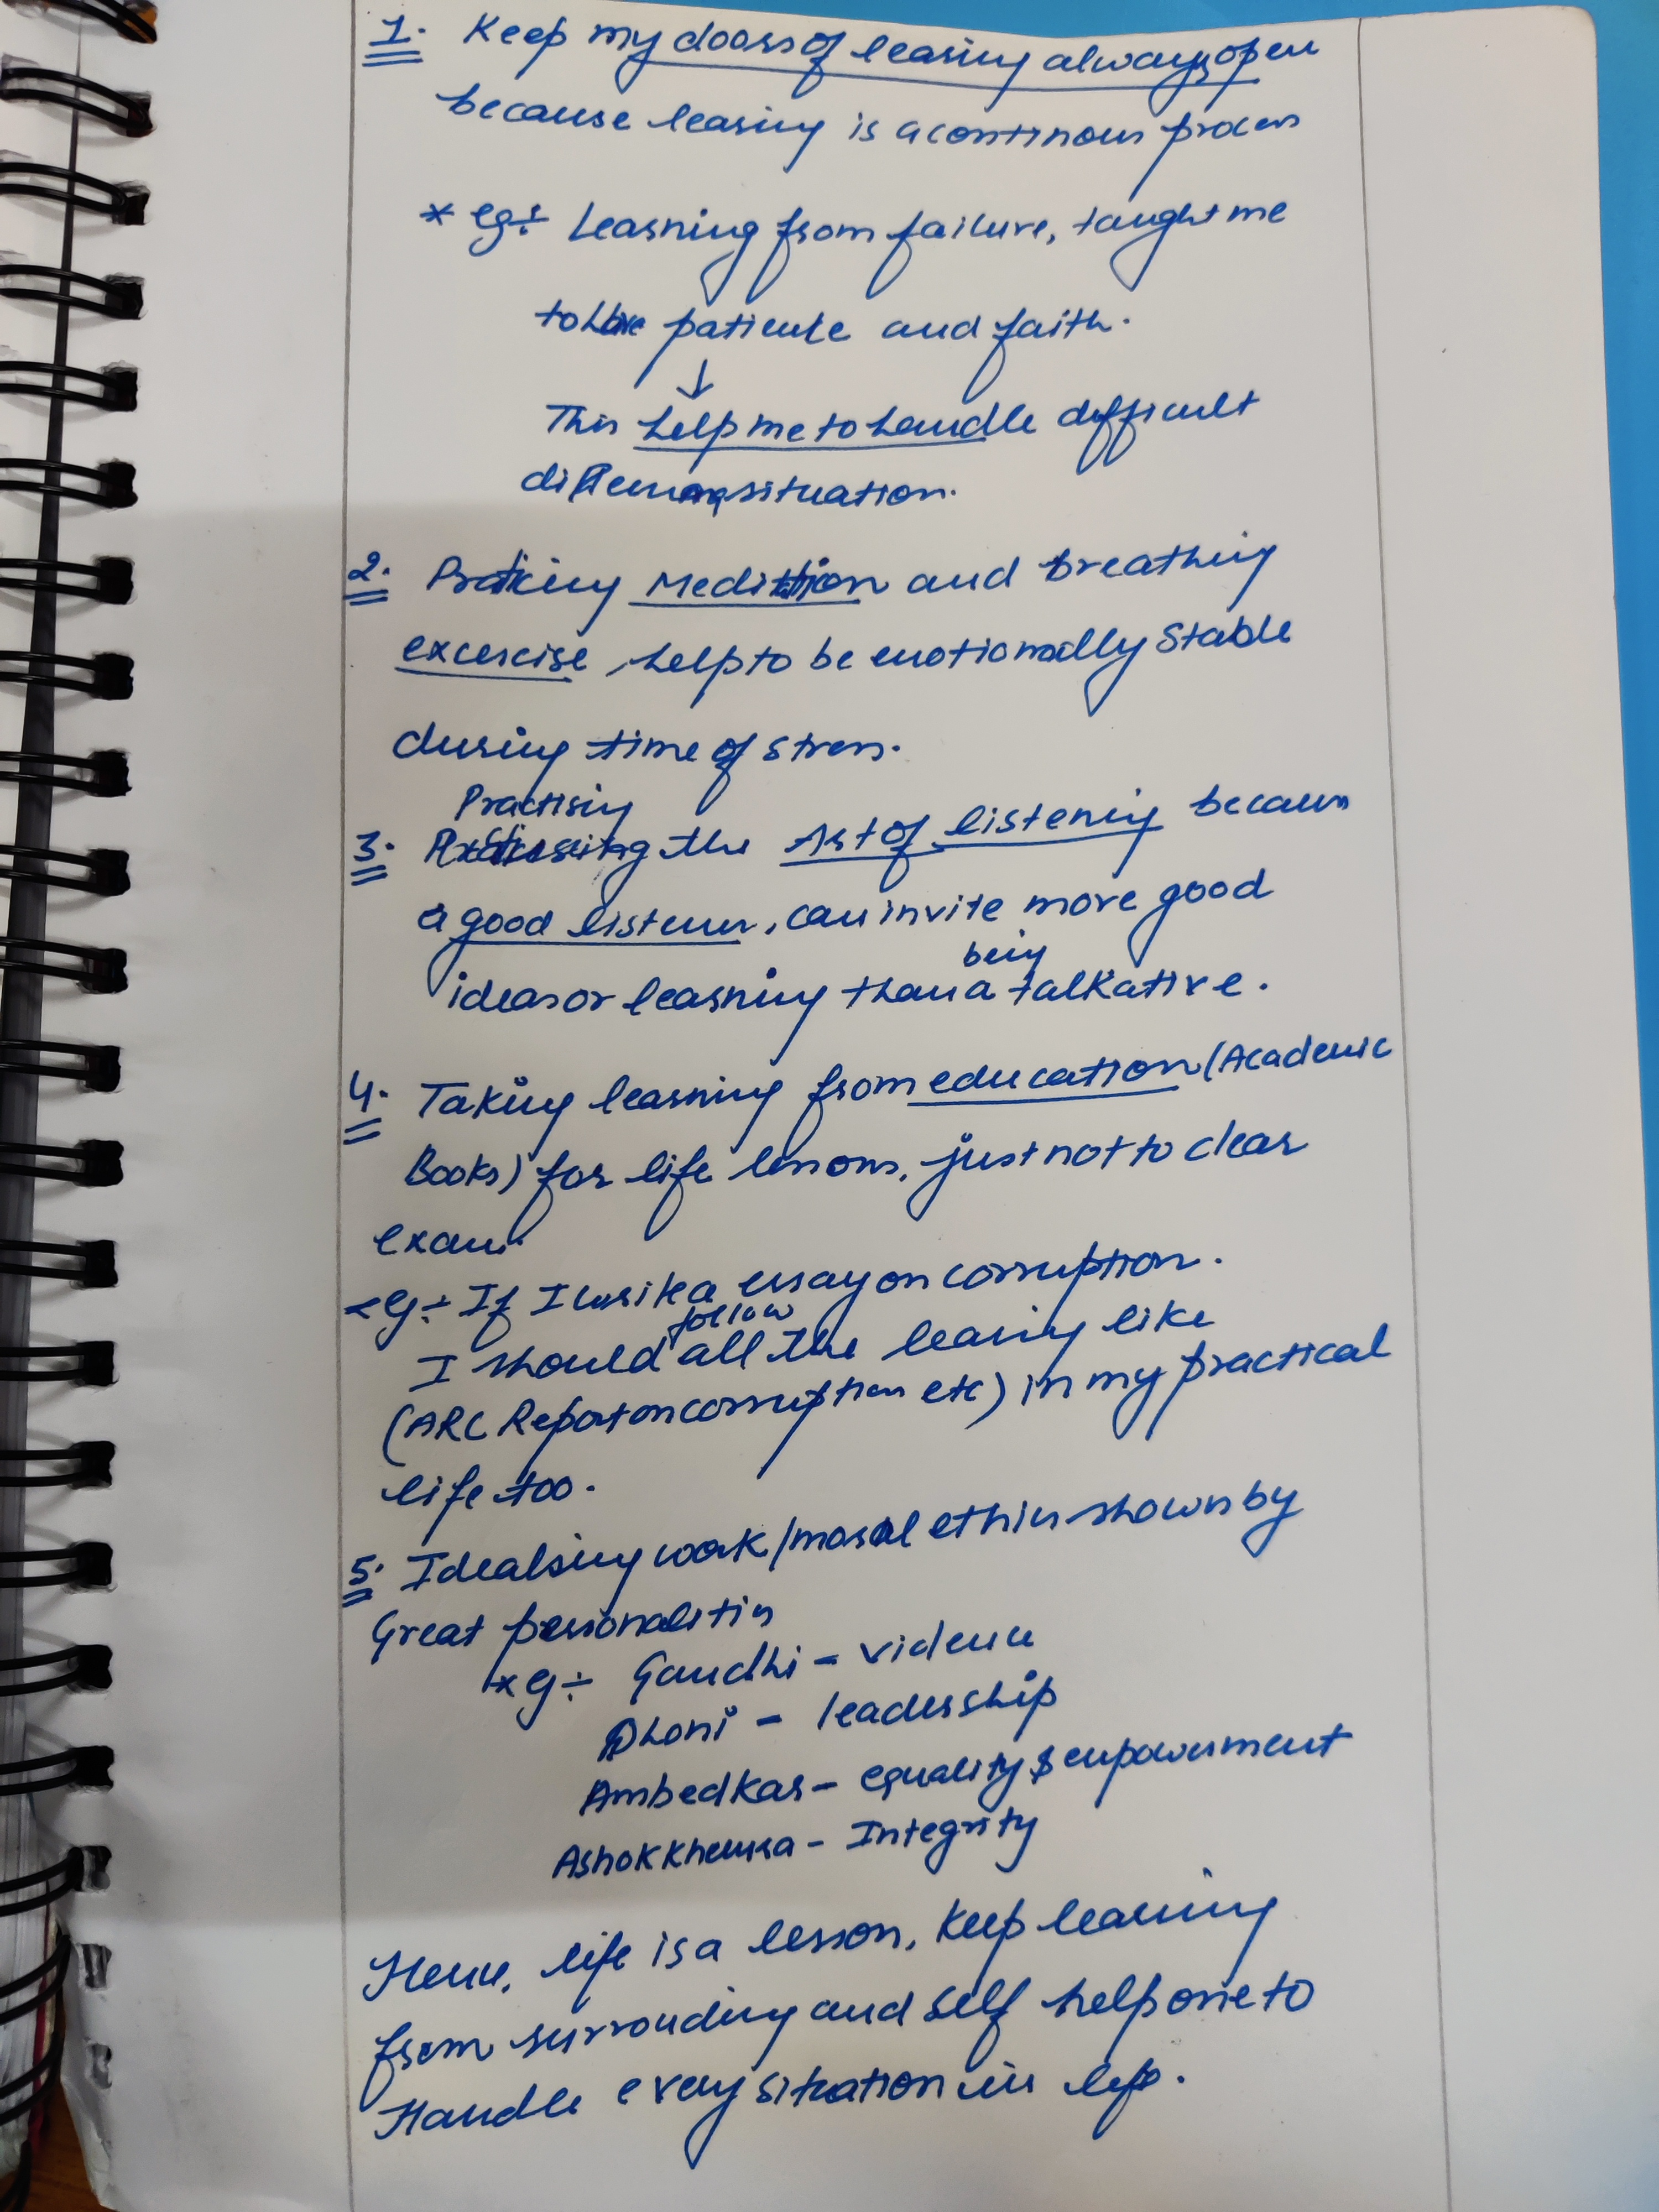 1. Keep my doors of learing always open
because learing is a continous process
* eg:- Learning from failure, taught me
to have patience and faith.
↓
This help me to handle difficult
situation.
2. Praticing Meditation and breathing
excercise, help to be emotionally stable
during time of stress.
Practising
3. the Art of listening because
a good listener, can invite more good
being
ideas or learning than a talkative.
4. Taking learning from education (Academic
Books) for life lessons, just not to clear
exam.
eg:- If I write a essay on corruption.
follow
I should all the learing like
(ARC Report on corruption etc) in my practical
life too.
5. Idealsing work/moral ethics shown by
Great personalities
eg:- Gandhi - violence
Dhoni - leadership
Ambedkar - equality & empowerment
Ashok Khemka - Integrity
Hence, life is a lesson, keep learning
from surrouding and self help one to
Handle every situation in life.